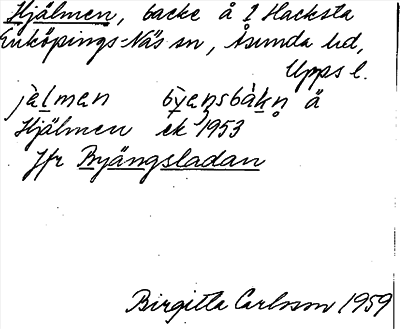 Hjälmen, backe å 1 Hacksta
Enköpings-Näs sn, Åsunda hd,
Upps l.
jälmen byensbåkn ä
Hjälmen ek 1953
Jfr Byängsladan
Birgitta Carlsson 1959